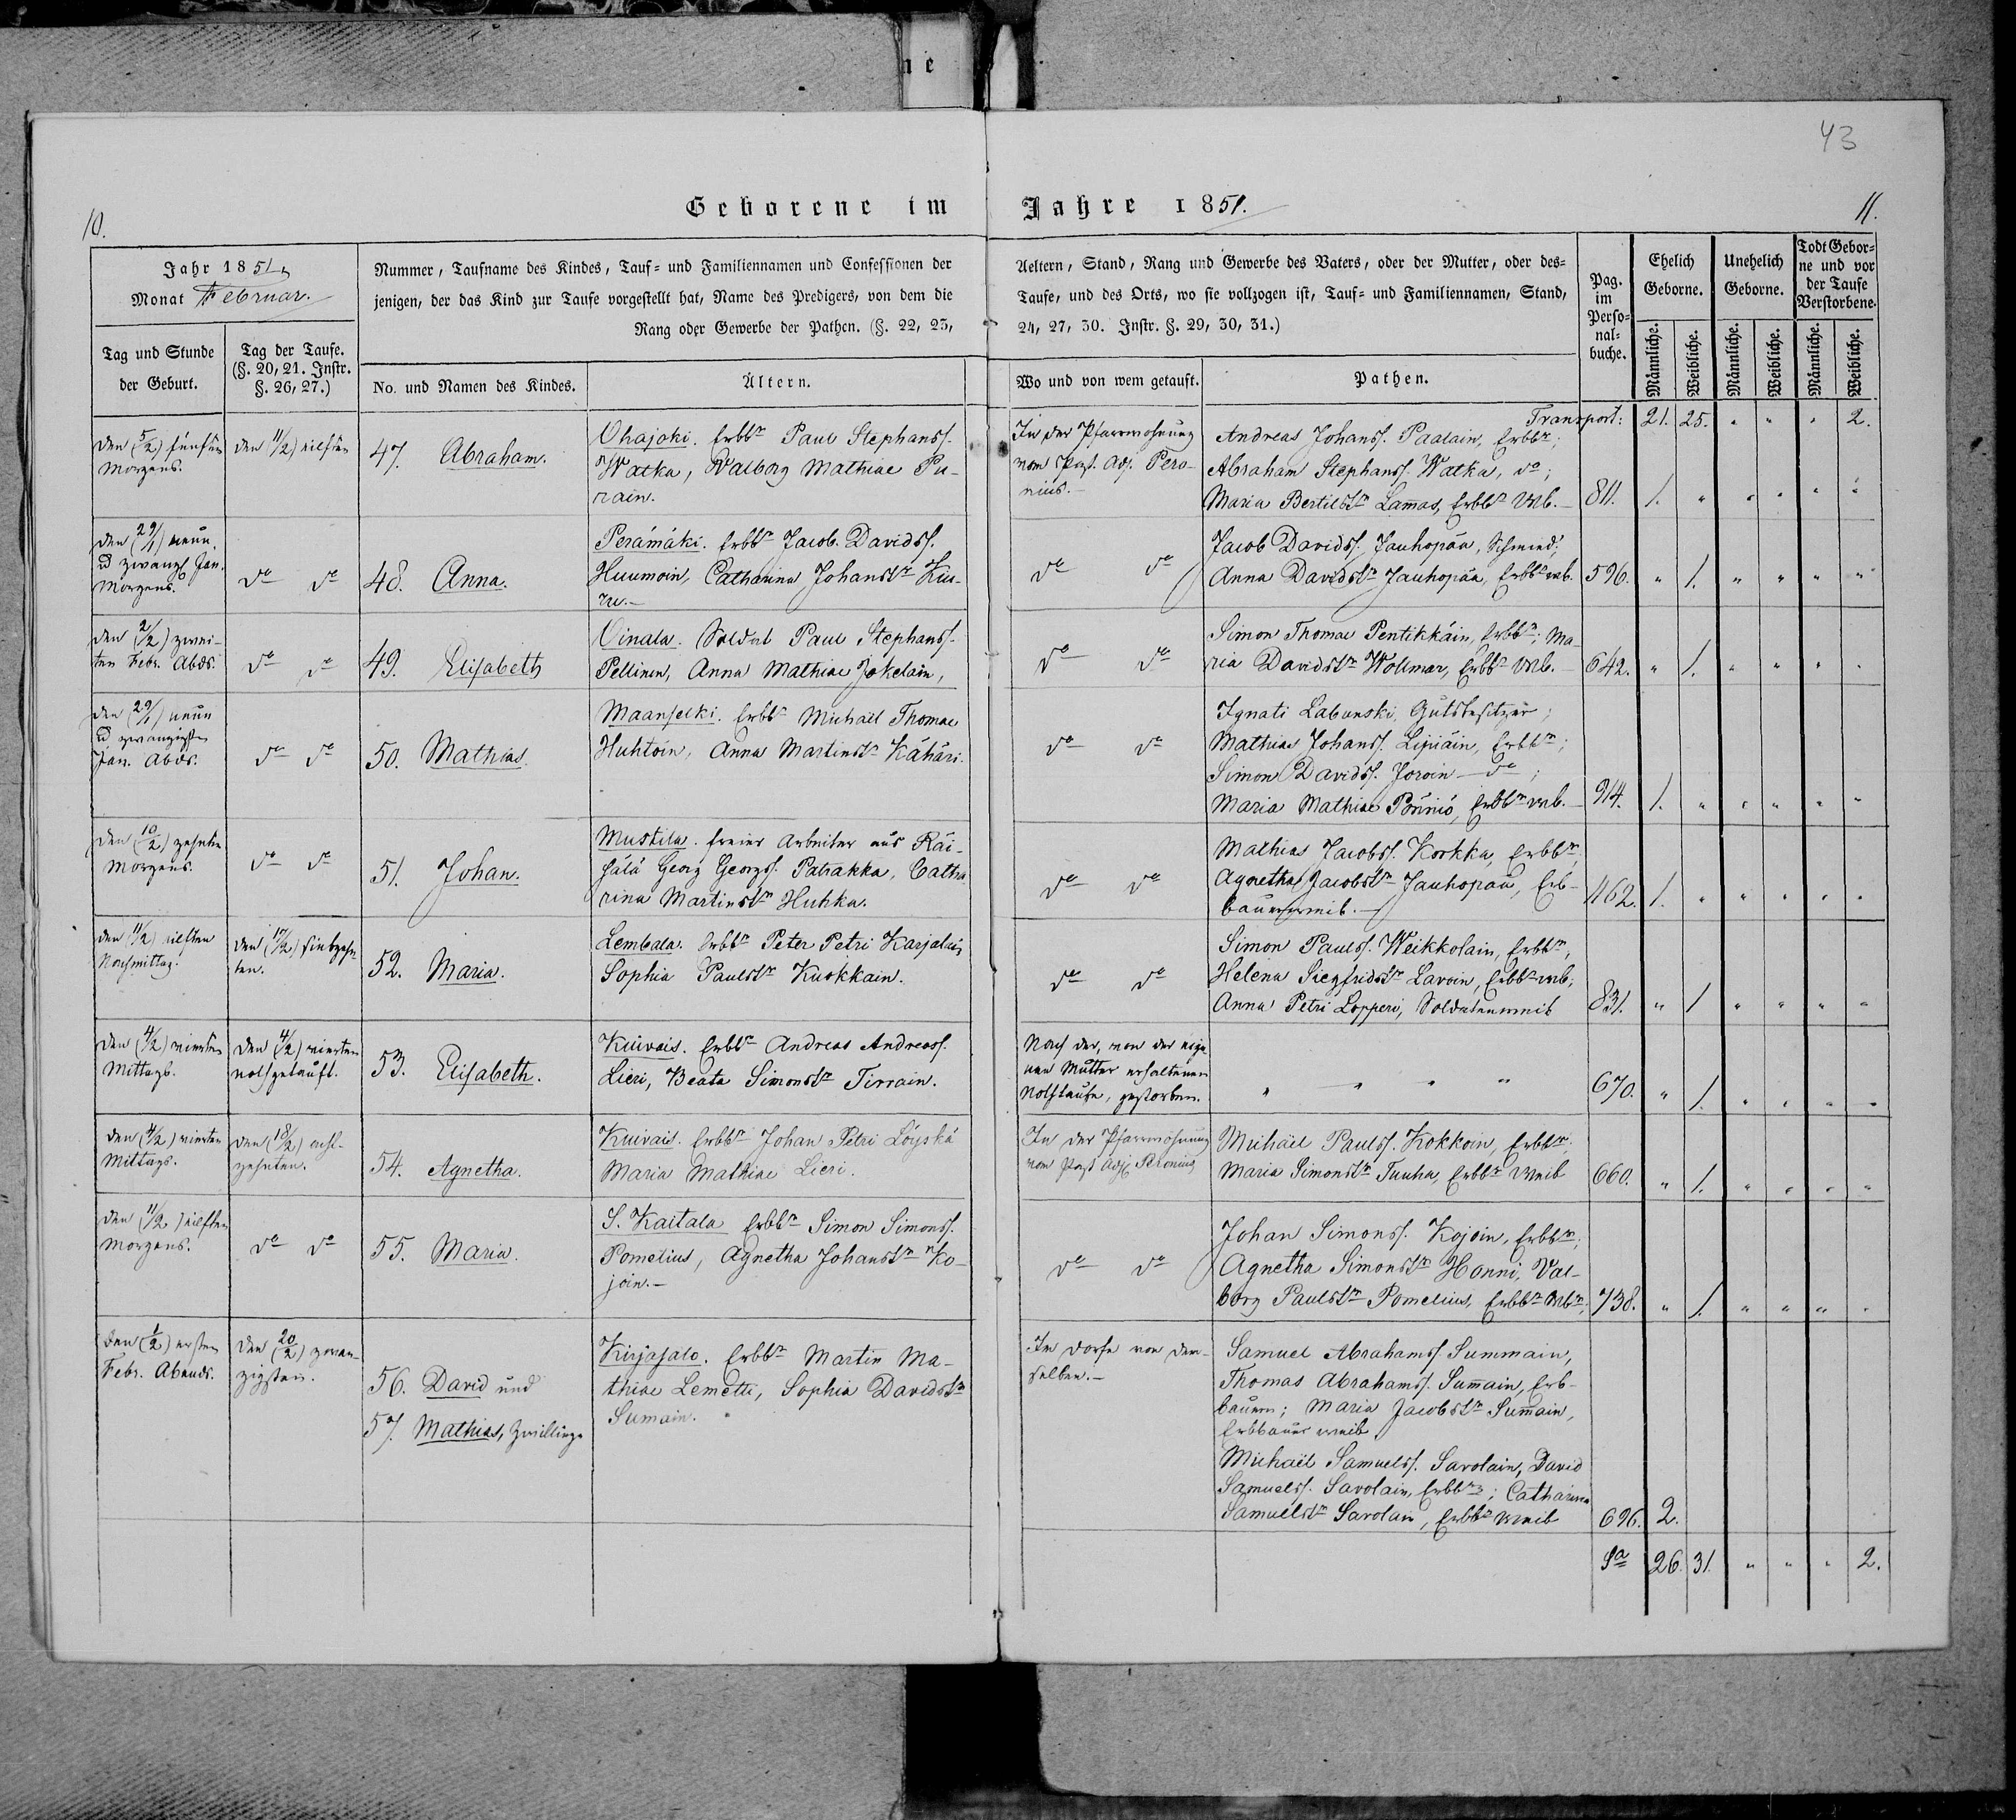 ne
43
Geborene im Jahre 1851.
10.
11.
Jahr 1851,
Monat Februar.
Nummer, Taufname des Kindes, Tauf- und Familiennamen und Confessionen der
jenigen, der das Kind zur Taufe vorgestellt hat, Name des Predigers, von dem die
Rang oder Gewerbe der Pathen. (§. 22, 23,
Aeltern, Stand, Rang und Gewerbe des Vaters, oder der Mutter, oder des-
Taufe, und des Orts, wo sie vollzogen ist, Tauf- und Familiennamen, Stand,
24, 27, 30. Instr. §. 29, 30, 31.)
Pag. im Perso-nal-buche.
Ehelich Geborne.
Unehelich Geborne.
Todt Gebor-ne und vor der Taufe Verstorbene.
Tag und Stunde der Geburt.
Tag der Taufe. (§. 20, 21. Instr. §. 26, 27.)
No. und Namen des Kindes.
Ältern.
Wo und von wem getauft.
Pathen.
Männliche. Weibliche. Männliche. Weibliche. Männliche. Weibliche.
Transport: 21. 25. " " " 2.
den (5/2) fünften
Morgens.
den (11/2) eilften
47. Abraham.
Ohajoki. Erbbr Paul Stephanss.
Watka, Walborg Mathiae Pu-
rain.
In der Pfarrwohnung
vom Past. Adj. Pero-
nius.
Andreas Johanss. Paalain, Erbbr;
Abraham Stephanss. Watka, do;
Maria Bertilstr Lam̄as, Erbbr Wb.
811. 1. " " " " "
den (29/1) neun
u zwanzg Jan.
Morgens.
do do
48. Anna.
Perämäki. Erbbr Jacob Davidss.
Huumoin, Catharina Johanstr Kiu-
ru.
do do
Jacob Davidss. Jauhopää, Schmied;
Anna Davidstr Jauhopää, Erbbr wb.
596. " 1. " " " "
den (2/2) zwei-
ten Febr. Abds.
do do
49. Elisabeth
Oinala. Soldat Paul Stephanss.
Pellinen, Anna Mathiae Jokelain,
do do
Simon Thomae Pentikkäin, Erbbr; Ma-
ria Davidstr Wollmar, Erbbr Wb.
642. " 1. " " " "
den (29/1) neun
u zwanzigsten
Jan. Abds.
do do
50. Mathias.
Maanselki. Erbbr Michaël Thomae
Huhtoin, Anna Martinstr Kähäri.
do do
Ignati Labunski, Gutsbesitzer;
Mathias Johanss. Lipiäin, Erbbr;
Simon Davidss. Joroin do;
Maria Mathiae Pönniö, Erbbr wb.
914. 1. " " " " "
den (10/2) zehnten
Morgens.
do do
51. Johan.
Mustila. freier Arbeiter aus Räi-
sälä Georg Georgs. Patrakka, Catha
rina Martinstr Huhka.
do do
Mathias Jacobss. Korkka, Erbbr;
Agnetha Jacobstr Jauhopää, Erb-
bauernweib.
1162. 1. " " " " "
den (11/2) eilften
Nachmittag.
den (17/2) siebzehn
ten.
52. Maria.
Lembala. Erbbr Peter Petri Karjalain,
Sophia Paulstr Kuokkain.
do do
Simon Paulss. Weikkolain, Erbbr;
Helena Siegfridstr Lavoin, Erbbr wb;
Anna Petri Lopperi, Soldatenweib
831. " 1 " " " "
den (4/2) vierten
Mittags.
den (4/2) vierten
nothgetauft.
53. Elisabeth.
Kuivais. Erbbr Andreas Andreass.
Lieri, Beata Simonstr Tirrain.
Nach der, von der eige
nen Mutter erhaltenen
Nothtaufe, gestorben.
" " " "
670. " 1. " " " "
den (4/2) vierten
Mittags.
den (18/2) acht-
zehnten.
54. Agnetha.
Kuivais. Erbbr Johan Petri Löyskä
Maria Mathiae Lieri.
In der Pfarrwohnung
vom Past Adj. Peronius
Michaël Paulss. Kokkoin, Erbbr;
Maria Simonstr Tuuha, Erbbr Weib
660. " 1. " " " "
den (11/2) eilften
Morgens.
do do
55. Maria.
S. Kaitala Erbbr Simon Simonss.
Pomelius, Agnetha Johanstr Ko-
join.
do do
Johan Simonss. Kojoin, Erbbr;
Agnetha Simonstr Honni, Val-
borg Paulstr Pomelius, Erbbr Wbr;
738. " 1. " " " "
den (1/2) ersten
Febr. Abends.
den (20/2) zwan-
zigsten.
56. David und
57. Mathias, Zwillinge
Kirjasalo. Erbbr Martin Ma-
thiae Lemetti, Sophia Davidstr
Sumain.
Im Dorfe von dem-
selben.
Samuel Abrahamss. Summain,
Thomas Abrahamss. Sum̄ain, Erb-
bauern; Maria Jacobstr Sum̄ain,
Erbbauer weib
Michaël Samuelss. Savolain, David
Samuelss. Savolain, Erbbr; Catharina
Samuelstr Savolain, Erbbr Weib
696. 2.
Sa 26. 31. " " " 2.